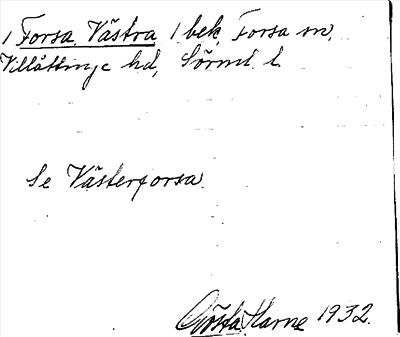 1 Forsa, Västra / bek, Forsa sn,
Villåttinge hd, Sörml. l.
Se Västerforsa.
Gösta Harne 1932.